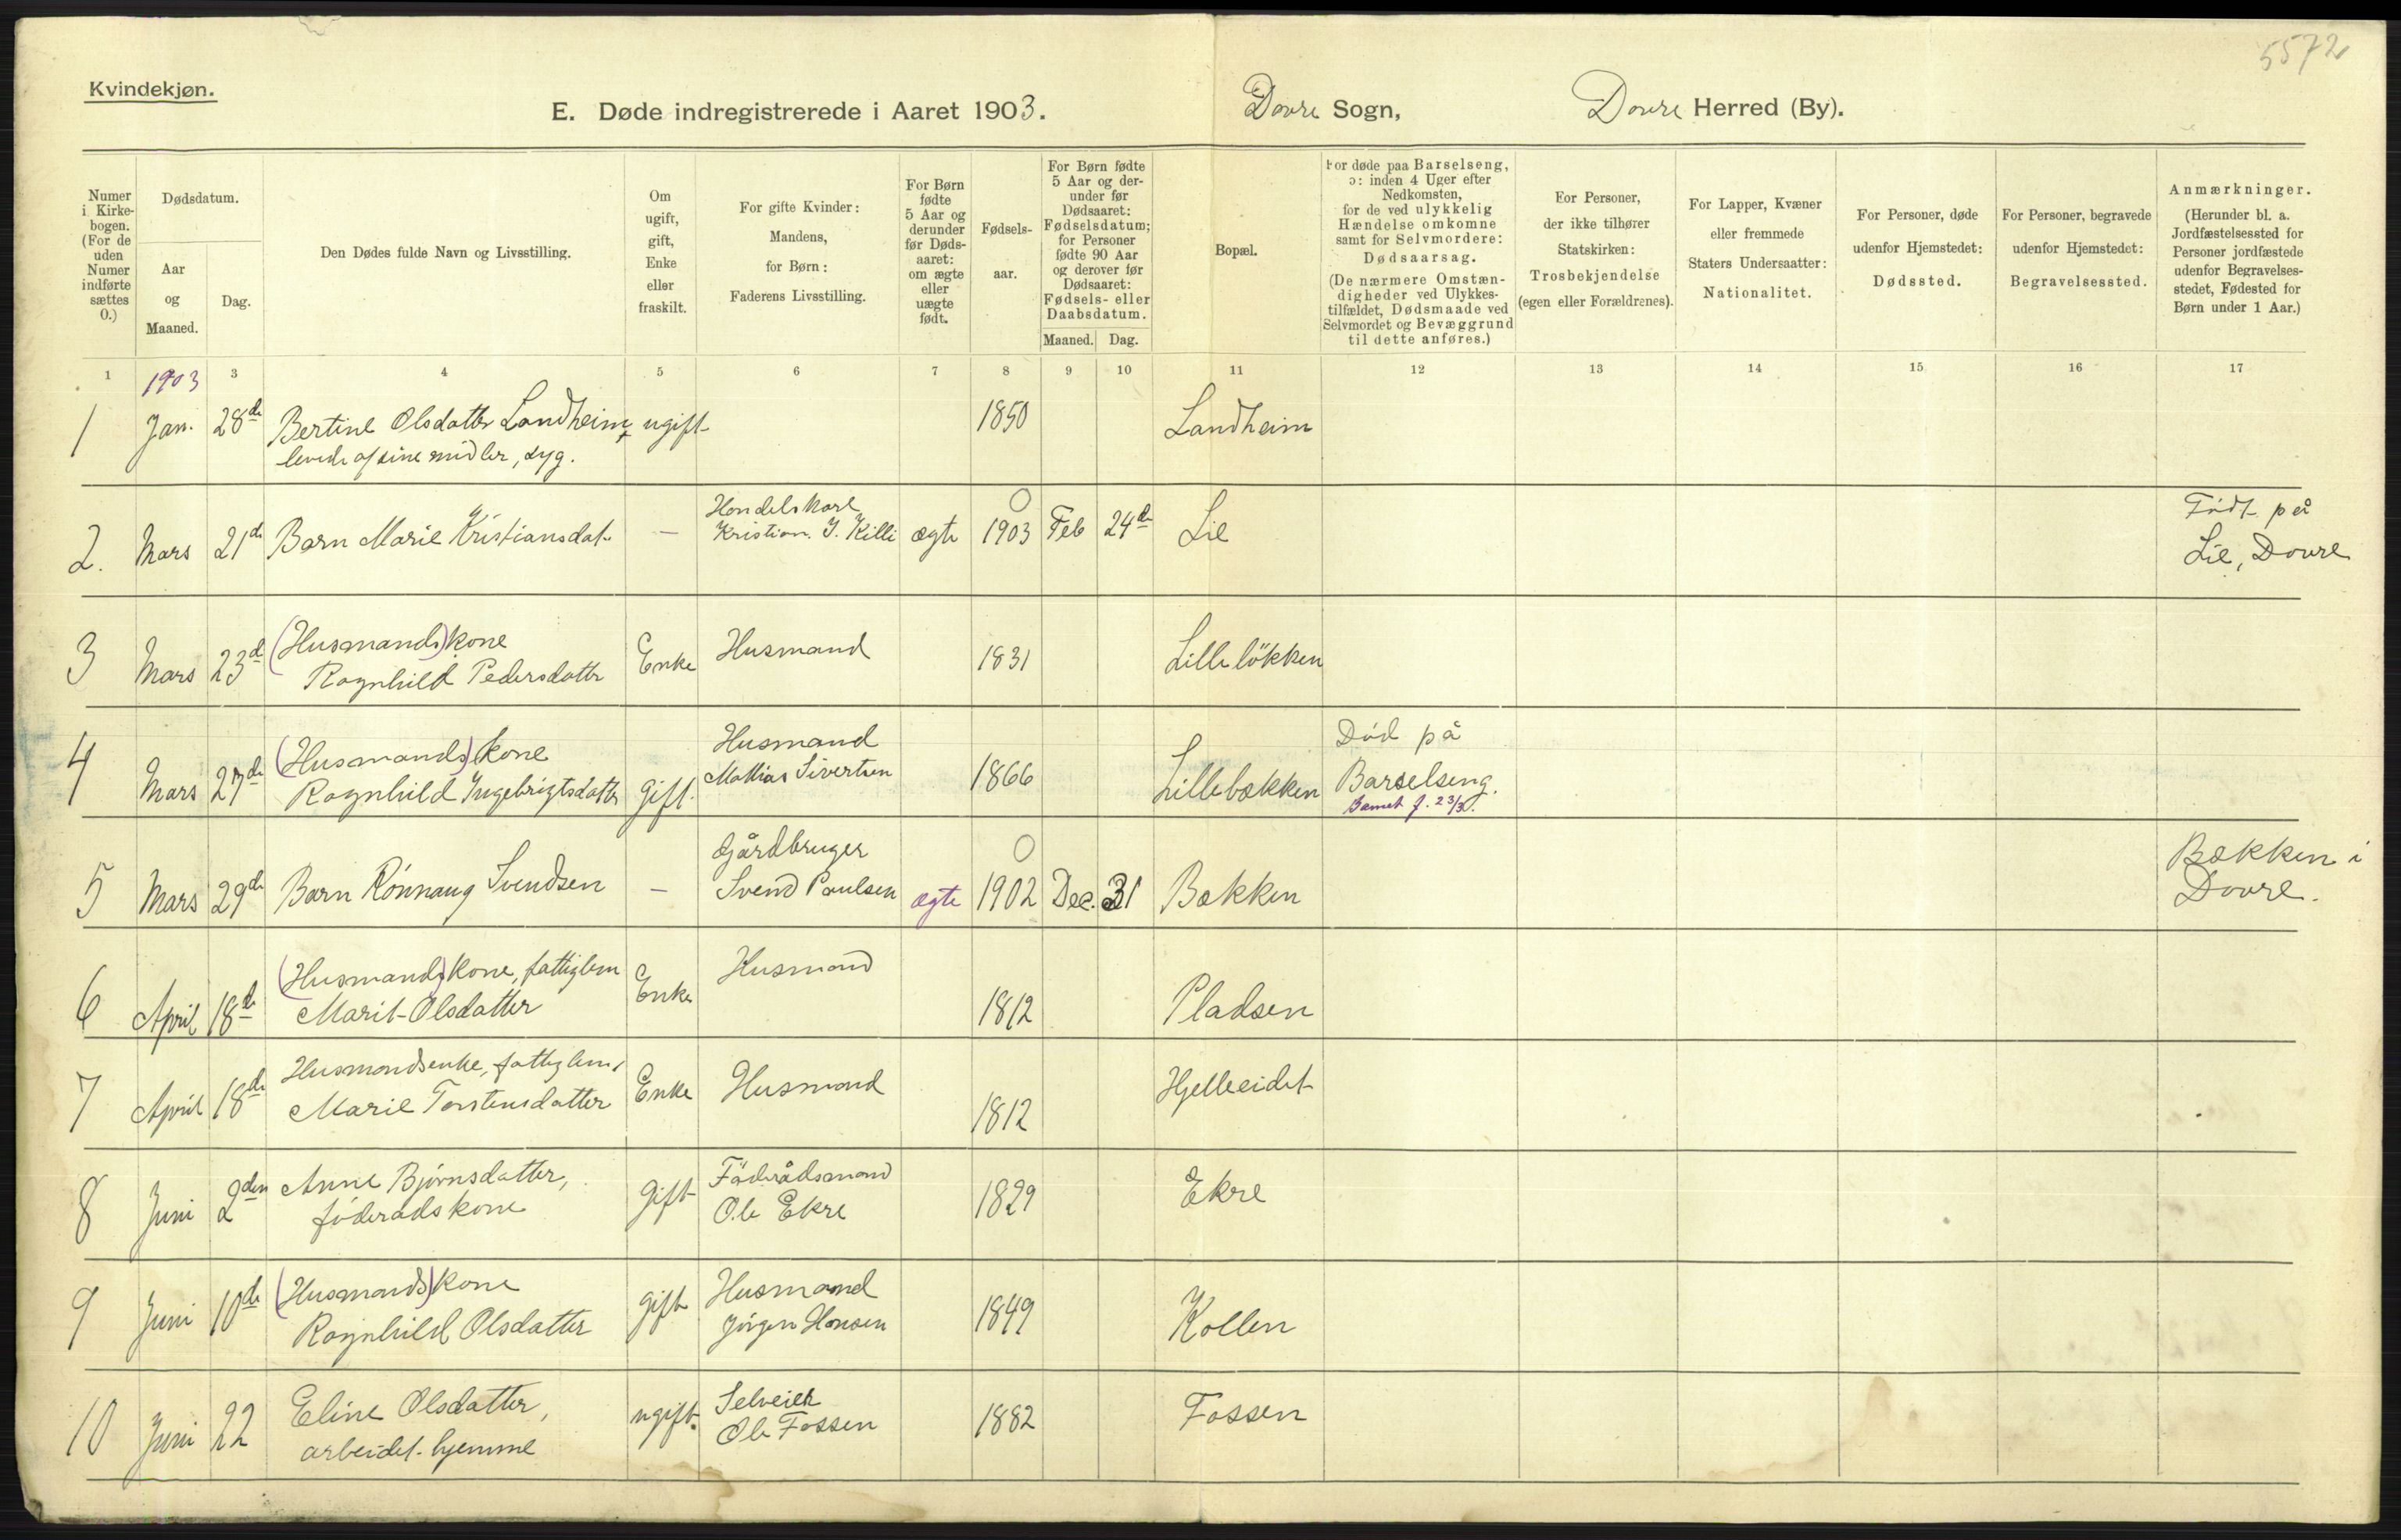 5572
Kvindekjøn.
E. Døde indregistrerede i Aaret 1903. Dovre Sogn, Dovre Herred (By).
Numer i Kirke-bogen. (For de uden Numer indførte sættes 0.)
Dødsdatum.
Aar og Maaned.
Dag.
Den Dødes fulde Navn og Livsstilling.
Om ugift, gift, Enke eller fraskilt.
For gifte Kvinder: Mandens, for Børn: Faderens Livsstilling.
For Børn fødte 5 Aar og derunder før Døds-aaret: om ægte eller uægte født.
Fødsels-aar.
For Børn fødte 5 Aar og der-under før Dødsaaret: Fødselsdatum; for Personer fødte 90 Aar og derover før Dødsaaret: Fødsels- eller Daabsdatum.
Maaned. Dag.
Bopæl.
For døde paa Barselseng, ɔ: inden 4 Uger efter Nedkomsten, for de ved ulykkelig Hændelse omkomne samt for Selvmordere: Dødsaarsag. (De nærmere Omstæn-digheder ved Ulykkes-tilfældet, Dødsmaade ved Selvmordet og Bevæggrund til dette anføres.)
For Personer, der ikke tilhører Statskirken: Trosbekjendelse (egen eller Forældrenes).
For Lapper, Kvæner eller fremmede Staters Undersaatter: Nationalitet.
For Personer, døde udenfor Hjemstedet: Dødssted.
For Personer, begravede udenfor Hjemstedet: Begravelsessted.
Anmærkninger. (Herunder bl. a. Jordfæstelsessted for Personer jordfæstede udenfor Begravelses-stedet, Fødested for Børn under 1 Aar.)
1 1903 3 4 5 6 7 8 9 10 11 12 13 14 15 16 17
1 Jan. 28de Bertine Olsdatter Landheim ugift 1850 Landheim
levede af sine midler, syg.
2. Mars 21de Barn Marie Kristiansdat. — Handelskarl Kristian J. Killi ægte 0 1903 Feb 24de Lie Født på Lie, Dovre
3 Mars 23de (Husmands)kone
Ragnhild Pedersdatter Enke Husmand 1831 Lilleløkken
4 Mars 27de (Husmands)kone
Ragnhild Ingebrigtsdatter gift. Husmand Mathias Sivertsen 1866 Lillebækken Død på Barselseng. Barnet f. 23/3.
5 Mars 29de Barn Rønnaug Svendsen — Gårdbruger Svend Paulsen ægte 0 1902 Dec. 31 Bækken Bækken i Dovre.
6 April 18de (Husmands)kone, fattiglem
Marit Olsdatter Enke Husmand 1812 Pladsen
7 April 18de Husmandsenke, fattiglem,
Marie Torstensdatter Enke Husmand 1812 Hjelleeidet
8 Juni 2den Anne Bjørnsdatter,
føderådskone gift Føderådsmand Ole Ekre 1829 Ekre
9 Juni 10de (Husmands)kone
Ragnhild Olsdatter gift Husmand Jörgen Hansen 1849 Kollen
10 Juni 22 Eline Olsdatter,
arbeidet hjemme ugift. Selveier Ole Fossen 1882 Fossen